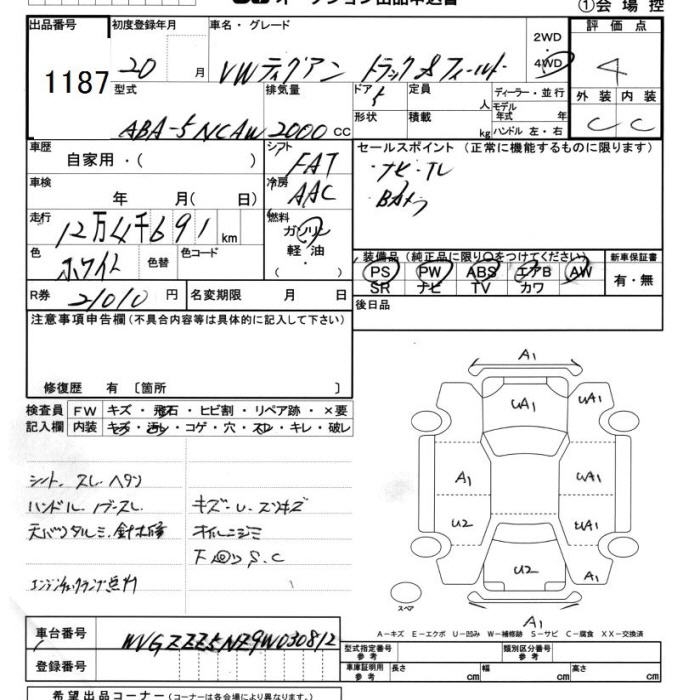 オークション出品申込書
①会場控
出品番号 初度登録年月 車名・グレード 評価点
1187 20 月 VWティグアン トラック&フィールド 2WD 4WD 4
型式 排気量 ドア 定員 人 ディーラー・並行 外装 内装
ABA-5NCAW 2000 cc 5 形状 積載 kg モデル年式 年 ハンドル 左・右 C C
車歴 自家用・( ) シフト FAT セールスポイント (正常に機能するものに限ります)
車検 年 月( 日) 冷房 AAC ・ナビ・TV
・Bカメラ
走行 12万4千691 km 燃料 ガソリン 軽油 ( )
色 ホワイト 色替 色コード 装備品 (純正品に限り○をつけてください) 新車保証書
PS PW ABS エアB AW 有・無
SR ナビ TV カワ
R券 21010 円 名変期限 月 日 後日品
注意事項申告欄(不具合内容等は具体的に記入して下さい)
修復歴 有 〔箇所 〕
検査員 FW キズ・飛石・ヒビ割・リペア跡・×要
記入欄 内装 キズ・汚レ・コゲ・穴・スレ・キレ・破レ
シート、スレ ヘタリ
ハンドル、ノブ-スレ キズ-U-スリキズ
天バリタルミ、針木障 オイルニジミ
下回りS.C
エンジンチェックランプ点灯
A1
UA1 UA1
A1 UA1
U2 UA1
U2 A1
スペア
A1
A-キズ E-エクボ U-凹み W-補修跡 S-サビ C-腐食 XX-交換済
車台番号 WVGZZZ5NZ9W030812
型式指定番号参考 類別区分番号参考
登録番号 車庫証明用参考 長さ cm 幅 cm 高さ cm
希望出品コーナー (コーナーは各会場により異なります。)